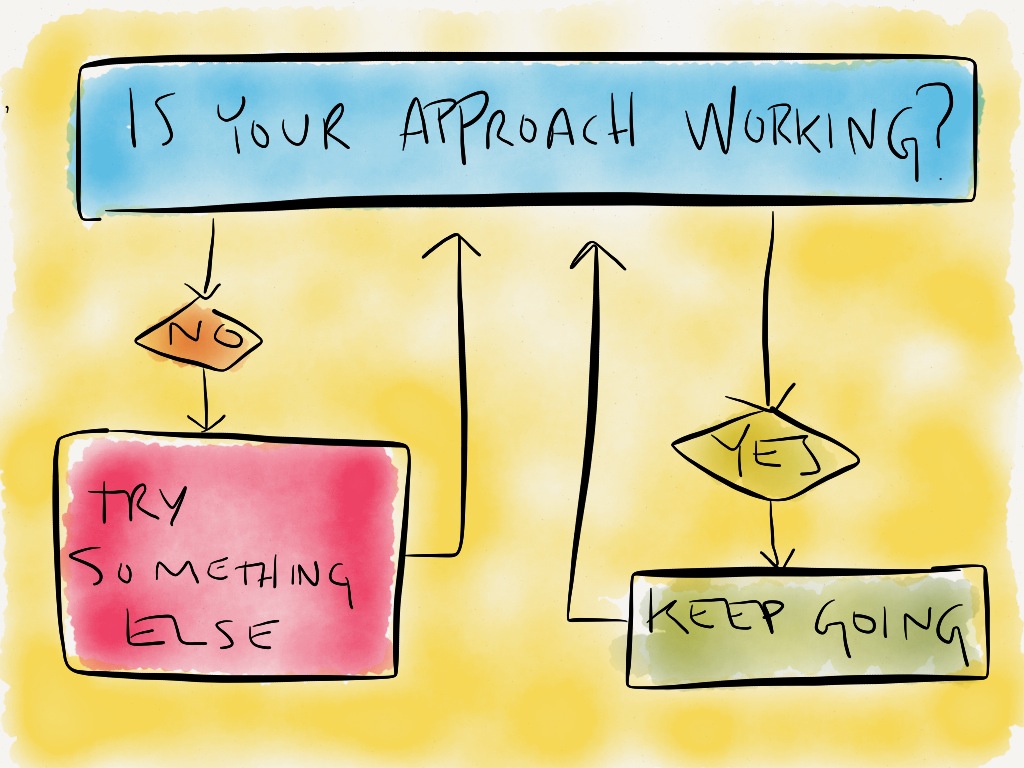 IS YOUR APPROACH WORKING?
NO
YES
TRY
SOMETHING
ELSE
KEEP GOING